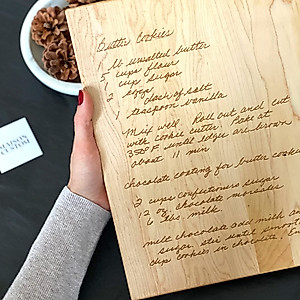 Butter Cookies
1 lb unsalted butter
5 cups flour
1 cup sugar
2 eggs
1 dash of salt
1 teaspoon vanilla
Mix well. Roll out and cut
with cookie cutter. Bake at
350°F until edges are brown
about 11 min
chocolate coating for butter cookies
2 cups confectioners sugar
12 oz chocolate morsels
6 tbs. milk
melt chocolate add milk and
sugar, stir until smooth
dip cookies in chocolate,
MAISON
CUSTOM